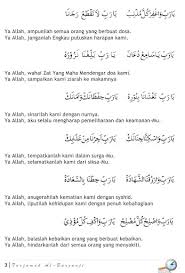 يَارَبِّ وَاغْفِرْ كُلَّ مُذْنِبْ يَارَبِّ لَا تَقْطَعْ رَجَانَا
Ya Allah, ampunilah semua orang yang berbuat dosa.
Ya Allah, janganlah Engkau putuskan harapan kami.
يَارَبِّ يَا سَامِعْ دُعَانَا يَارَبِّ بَلِّغْنَا نَزُورُهْ
Ya Allah, wahai Zat Yang Maha Mendengar doa kami.
Ya Allah, sampaikan kami ziarah ke makamnya.
يَارَبِّ تَغْشَانَا بِنُورِهْ يَارَبِّ حِفْظَانَكْ وَأَمَانَكْ
Ya Allah, sinarilah kami dengan nurnya.
Ya Allah, aku selalu mengharap pemeliharaan dan keamanan-Mu.
يَارَبِّ وَاسْكِنَّا جِنَانَكْ يَارَبِّ أَجِرْنَا مِنْ عَذَابِكْ
Ya Allah, tempatkanlah kami dalam surga-Mu.
Ya Allah, selamatkanlah kami dari siksa-Mu.
يَارَبِّ وَارْزُقْنَا الشَّهَادَةْ يَارَبِّ حِطْنَا بِالسَّعَادَةْ
Ya Allah, anugerahilah kematian kami dengan syahid.
Ya Allah, liputilah kehidupan kami dengan penuh kebahagiaan
يَارَبِّ وَاصْلِحْ كُلَّ مُصْلِحْ يَارَبِّ وَاكْفِ كُلَّ مُؤْذِيْ
Ya Allah, balaslah kebaikan orang yang berbuat kebaikan.
Ya Allah, hindarkanlah dari semua orang yang menyakiti.
3 | Terjemah Al-Barzanji